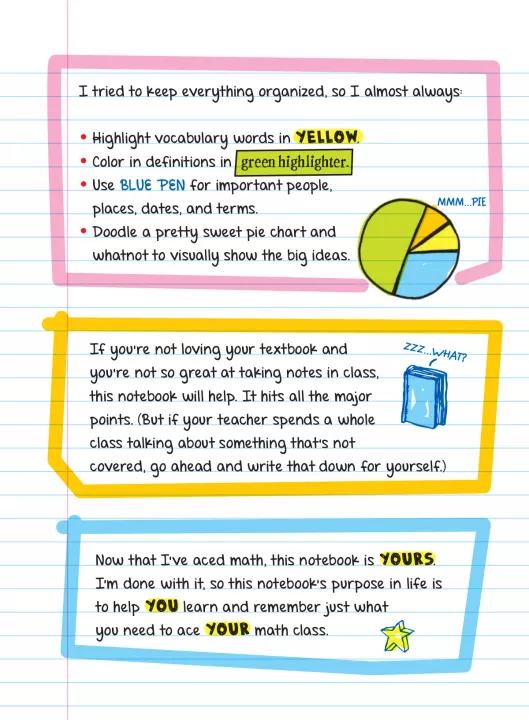 I tried to keep everything organized, so I almost always:
• Highlight vocabulary words in YELLOW.
• Color in definitions in green highlighter.
• Use BLUE PEN for important people,
places, dates, and terms.
MMM...PIE
• Doodle a pretty sweet pie chart and
whatnot to visually show the big ideas.
If you're not loving your textbook and
you're not so great at taking notes in class,
this notebook will help. It hits all the major
points. (But if your teacher spends a whole
class talking about something that's not
covered, go ahead and write that down for yourself.)
ZZZ...WHAT?
Now that I've aced math, this notebook is YOURS.
I'm done with it, so this notebook's purpose in life is
to help YOU learn and remember just what
you need to ace YOUR math class.